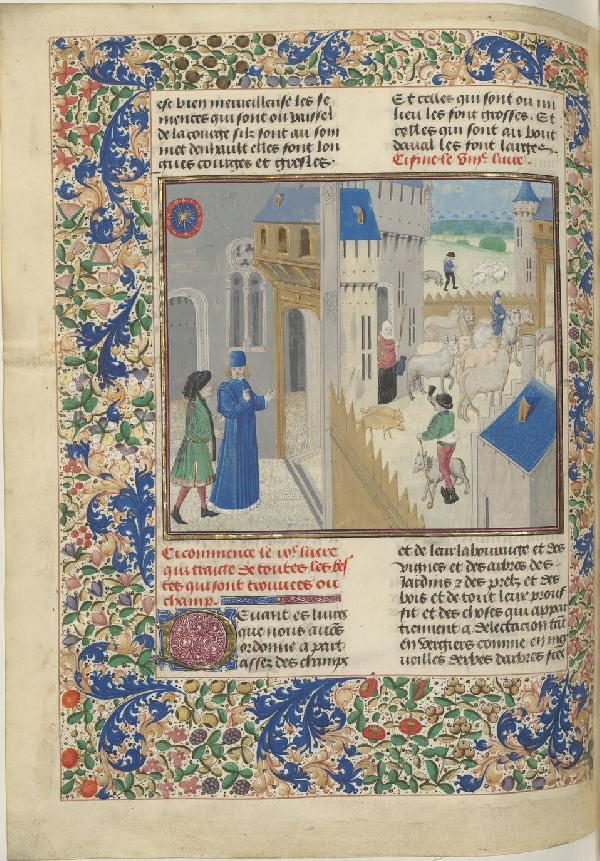 est bien merveilleuse les se
mences qui sont ou vaissel
de la courge silz sont au som
met denhault elles sont lon
gues courges et gresles.
Et celles qui sont ou mi
lieu les font grosses. Et
celles qui sont au bout
daval les font larges
Ci fine le viije livre.
Ci commence le ixe livre
qui traicte de toutes les bes
tes qui sont trouvees ou
champ.
Devant es livres
que nous avons
ordonne a part
assez des champs
et de leur labourage et des
vignes et des arbres des
Jardins et des prelz et des
bois et de tout leur prouf
fit et des choses qui appar
tiennent a delectacion tāt
en vergiers comme en mer
veilles derbes darbres